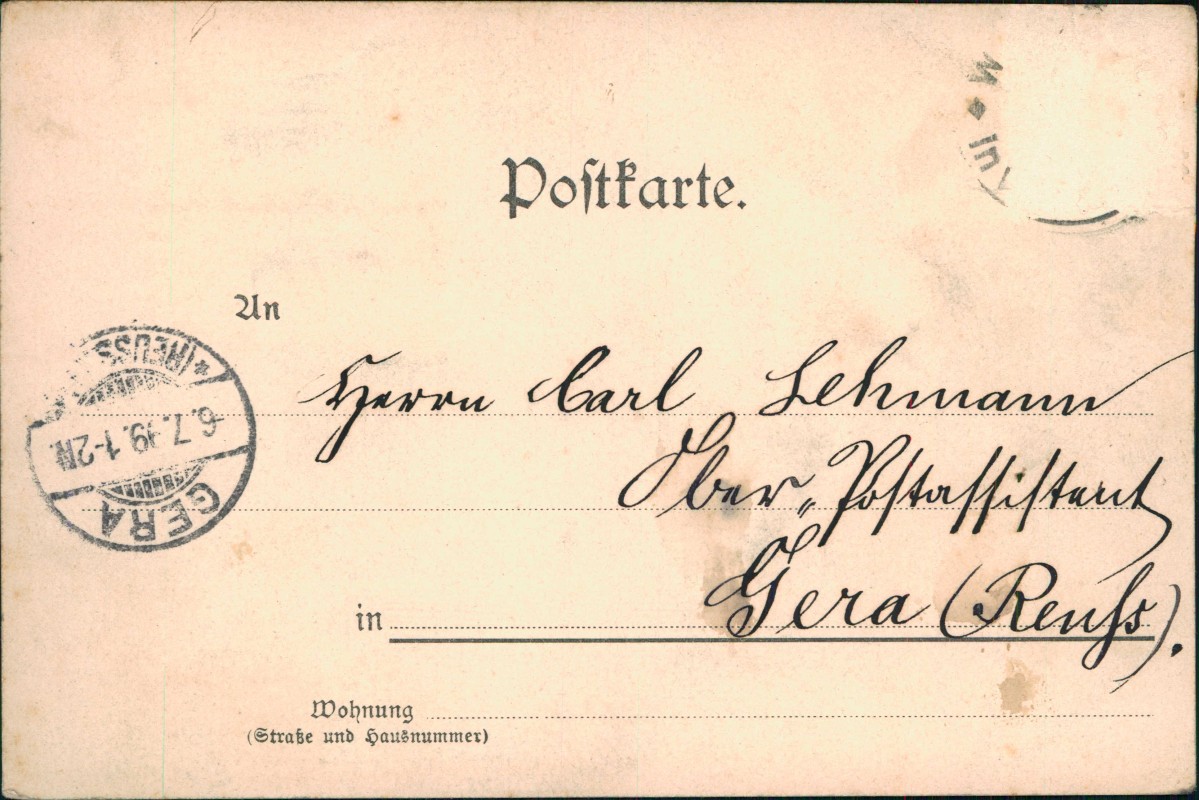 Postkarte.
An
Herrn Carl Lehmann
Ober-Postassistent
in Gera (Reuss).
Wohnung
(Straße und Hausnummer)
* (REUSS
6.7.99.1-2N.
GERA